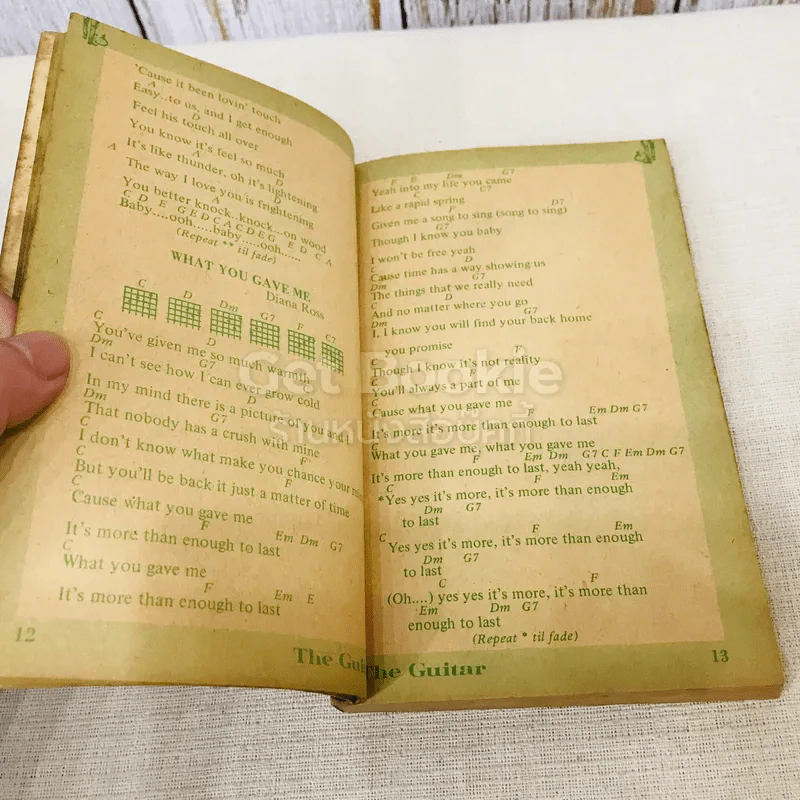 'Cause it been lovin' touch
A
Easy..to us, and I get enough
D
Feel his touch all over
You know it's feel so much
A A
It's like thunder, oh it's lightening
D
The way I love you is frightening
A D
You better knock..knock...on wood
C D E G E D C A C D E G E D C A
Baby....ooh.....baby.....ooh......
(Repeat ** til fade)
WHAT YOU GAVE ME
Diana Ross
C D Dm G7 F C7
C
You've given me so much warmth
Dm D
I can't see how I can ever grow cold
G7
In my mind there is a picture of you and I
Dm D
That nobody has a crush with mine
C G7
I don't know what make you chance your
C F
But you'll be back it just a matter of time
C F
Cause what you gave me
F Em Dm G7
It's more than enough to last
C
What you gave me
F Em E
It's more than enough to last
12
The Gui
F E Dm G7
Yeah into my life you came
C C7
Like a rapid spring
F D7
Given me a song to sing (song to sing)
G7
Though I know you baby
I won't be free yeah
C D
Cause time has a way showing us
Dm G7
The things that we really need
C D
And no matter where you go
Dm G7
I, I know you will find your back home
you promise
F
Though I know it's not reality
C F
You'll always a part of me
C
Cause what you gave me
F Em Dm G7
It's more it's more than enough to last
C
What you gave me, what you gave me
F Em Dm G7 C F Em Dm G7
It's more than enough to last, yeah yeah,
C F Em
*Yes yes it's more, it's more than enough
Dm G7
to last
C F Em
Yes yes it's more, it's more than enough
Dm G7
to last
C F
(Oh....) yes yes it's more, it's more than
Em Dm G7
enough to last
(Repeat * til fade)
he Guitar
13